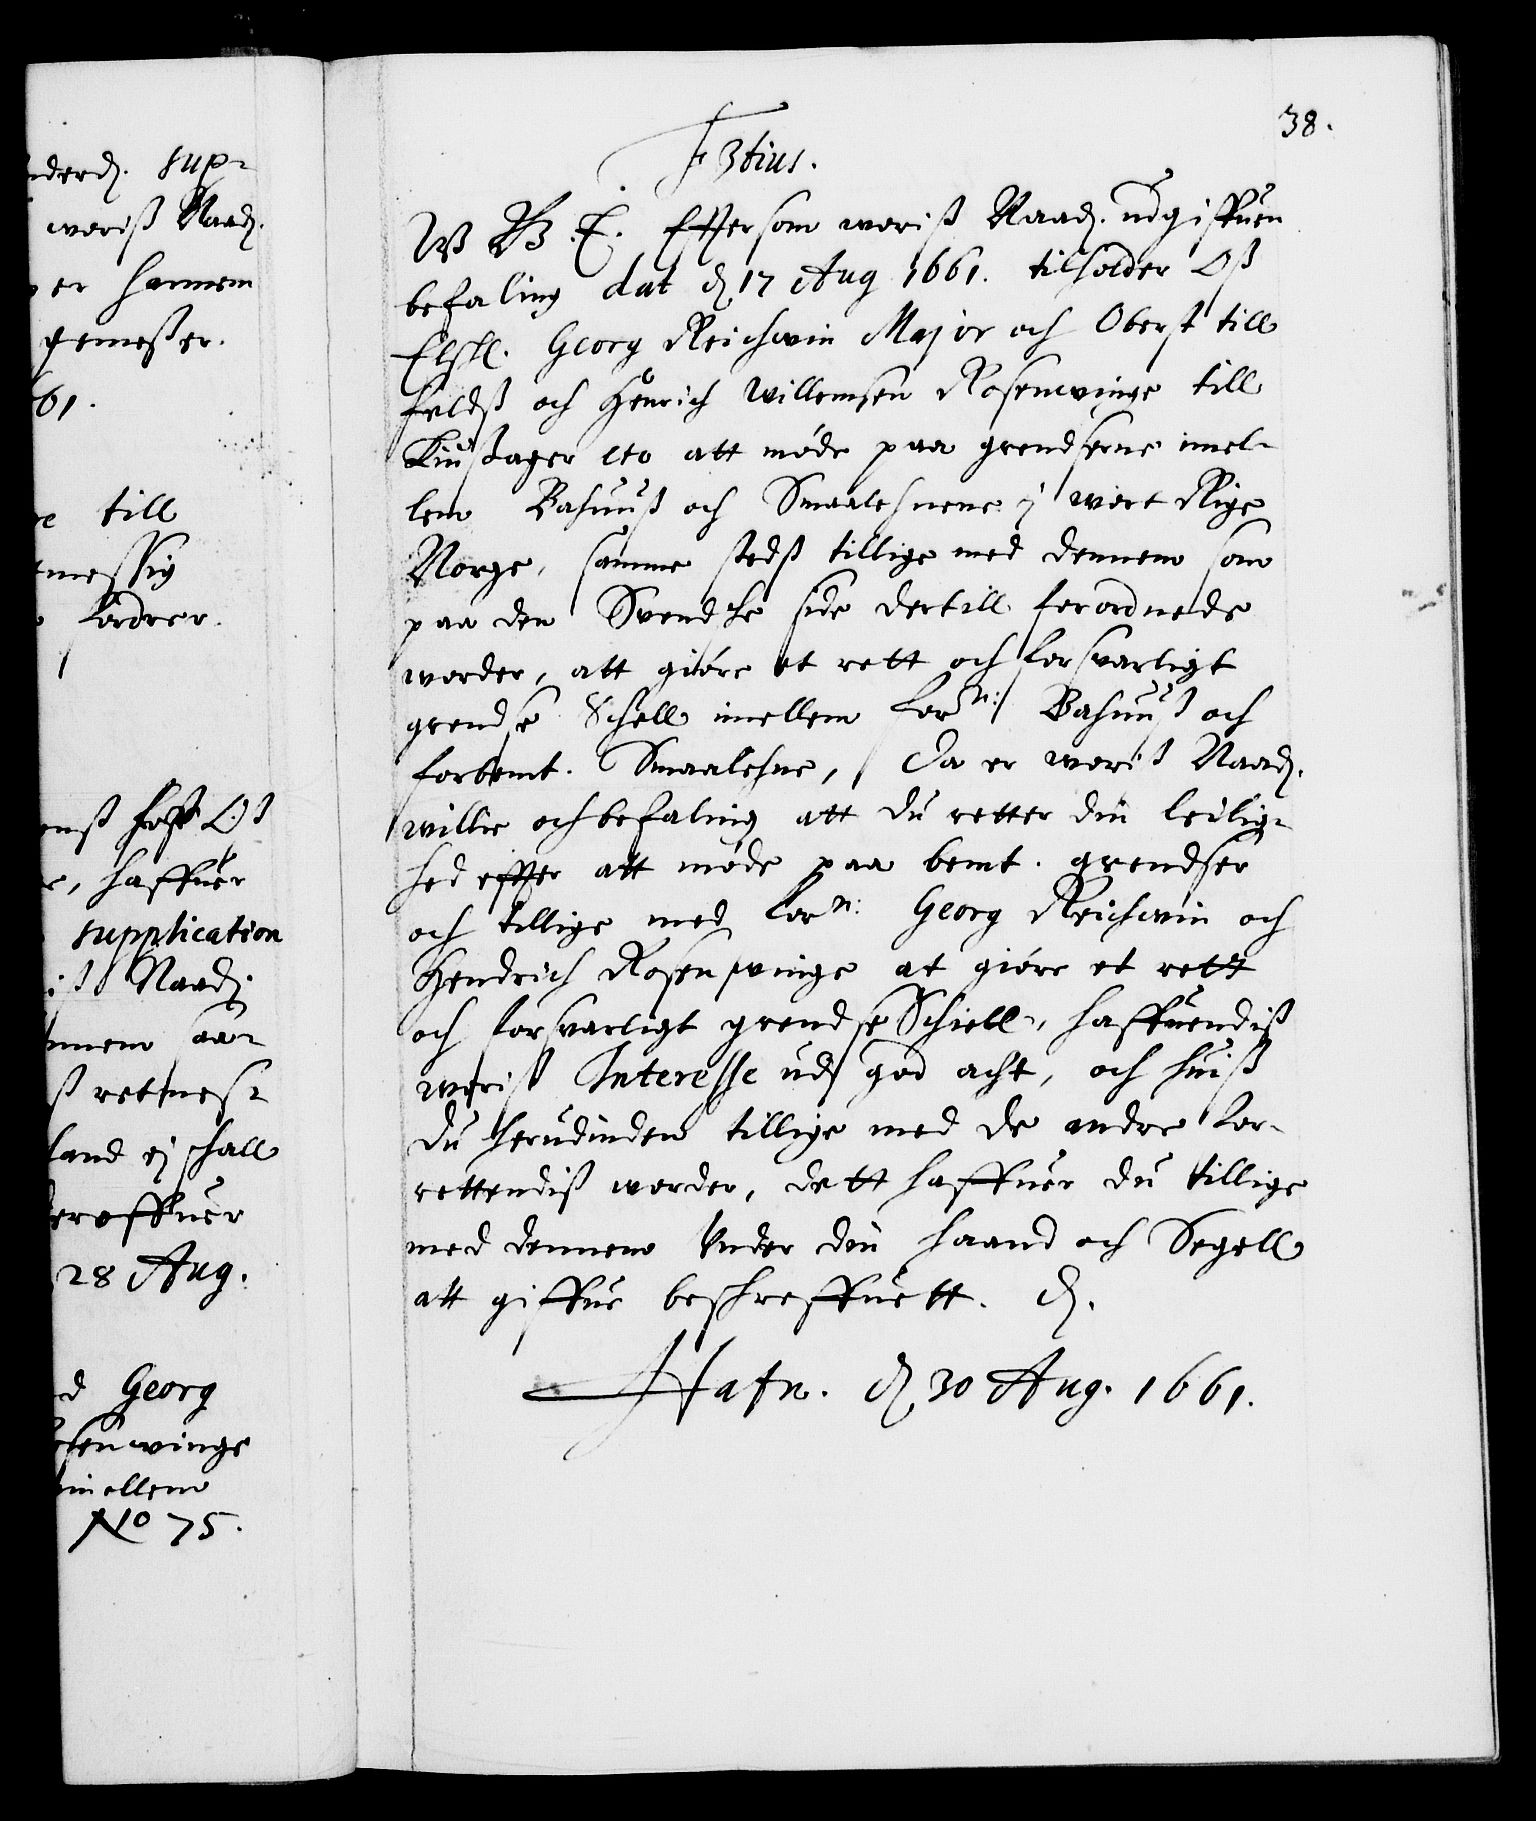 nderd. sup-
woriß Naad.
er hannem
gemesser.
61.
till
messig
fordrer.
enß hoß Oß
haffuer
supplication
iß Naad.
nnem aa-
ß retmes-
land ej schall
eroffuer
28 Aug.
d Georg
osenwinge
imellem
No 75.
38.
F 3tius.
W G. T. Effter som woriß Naad. udgiffuen
befaling dat d 17 Aug 1661. tilholder Oß
Elskl. Georg Reichwin Major och Oberst till
feldß och Henrich Willemsen Rosenwinge till
att møde paa grendserne imel-
lem Bahuuß och Smaalehnene i wort Rige
Norge, samme stedß tillige med dennem som
paa den Svendske side dertill forordnede
worder, att giøre et rett och forsvarligt
grendse Schell imellem forn: Bahuuß och
forbemt. Smaalehne, Da er woriß Naad.
willie och befaling att du retter din leilig-
hed effter att møde paa bemt. grendser
och tillige med forn: Georg Reichwin och
Hendrich Rosenwinge at giøre et rett
och forsvarligt grendse Schiell, haffuendiß
woriß Interesse udj god acht, och huiß
du herudinden tillige med de andre for-
rettendiß worder, dett haffuer du tillige
med dennem Under din haand och Segell
att giffue beschreffuett. D.
Hafn. d 30 Aug. 1661.